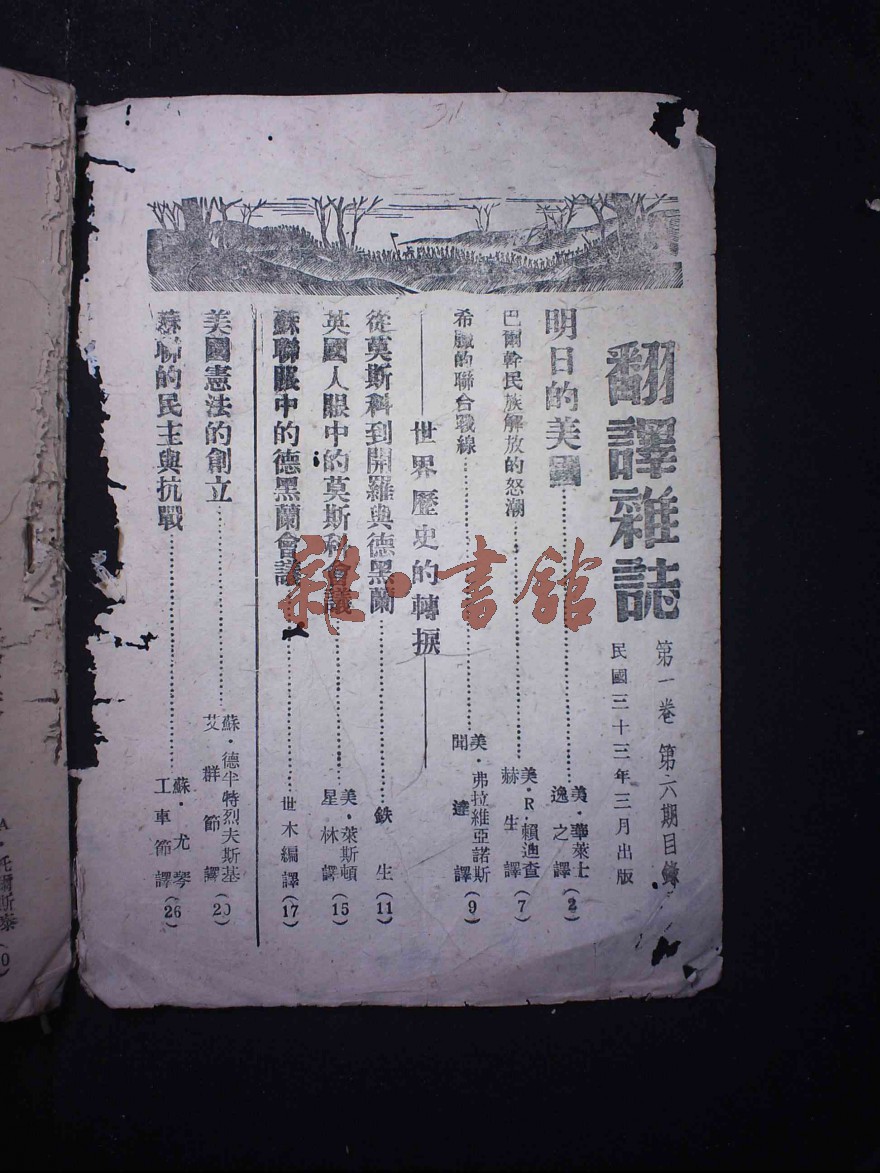 翻譯雜誌
第一卷 第六期目錄
民國三十三年三月出版
明日的美國 美·華萊士 逸之譯 (2)
巴爾幹民族解放的怒潮 美·R·賴迪查 赫生譯 (7)
希臘的聯合戰線 美·弗拉維亞諾斯 聞達譯 (9)
世界歷史的轉捩
從莫斯科到開羅與德黑蘭 鉄生 (11)
英國人眼中的莫斯科會議 美·萊斯頓 星林譯 (15)
蘇聯眼中的德黑蘭會議 世木編譯 (17)
美國憲法的創立 蘇·德半特烈夫斯基 艾群節譯 (20)
蘇聯的民主與抗戰 蘇·尤琴 工車節譯 (26)
A·托爾斯泰
雜·書館